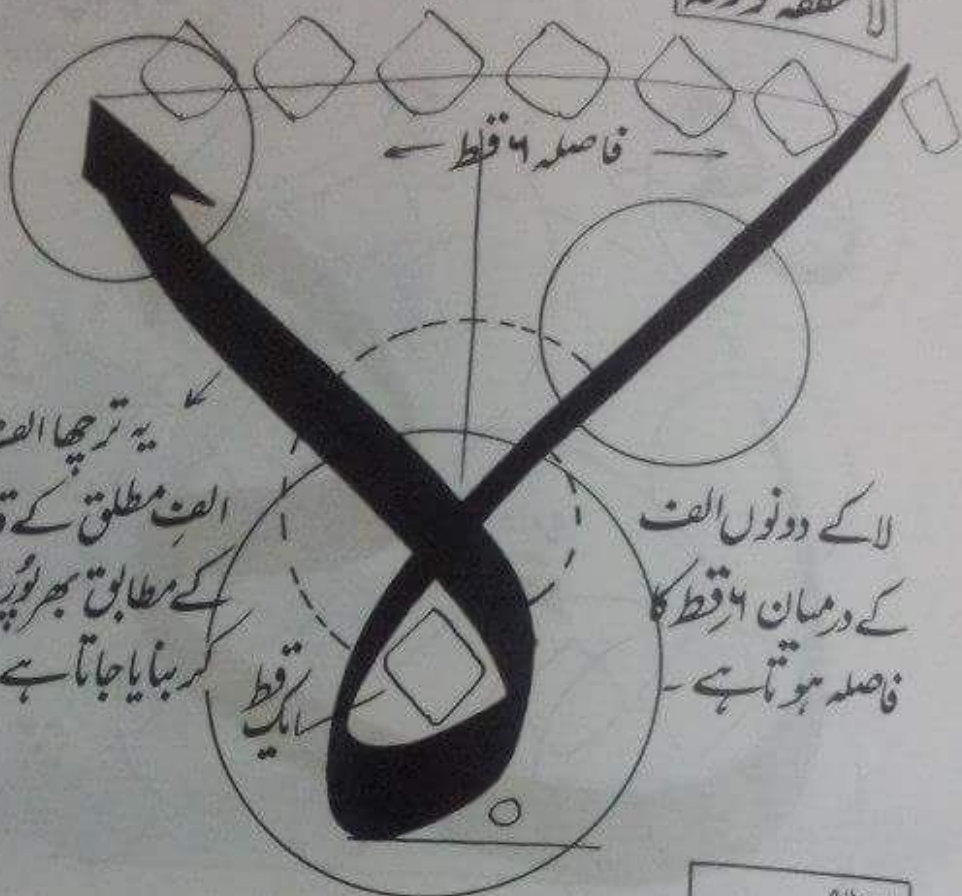 لا
فاصلہ ۶ قط
یہ ترچھا الف
الفِ مطلق کے
کے مطابق بھرپُور
کر بنایا جاتا ہے
لا کے دونوں الف
کے درمیان ۶ قط کا
فاصلہ ہوتا ہے ۔
ایک قط
لا